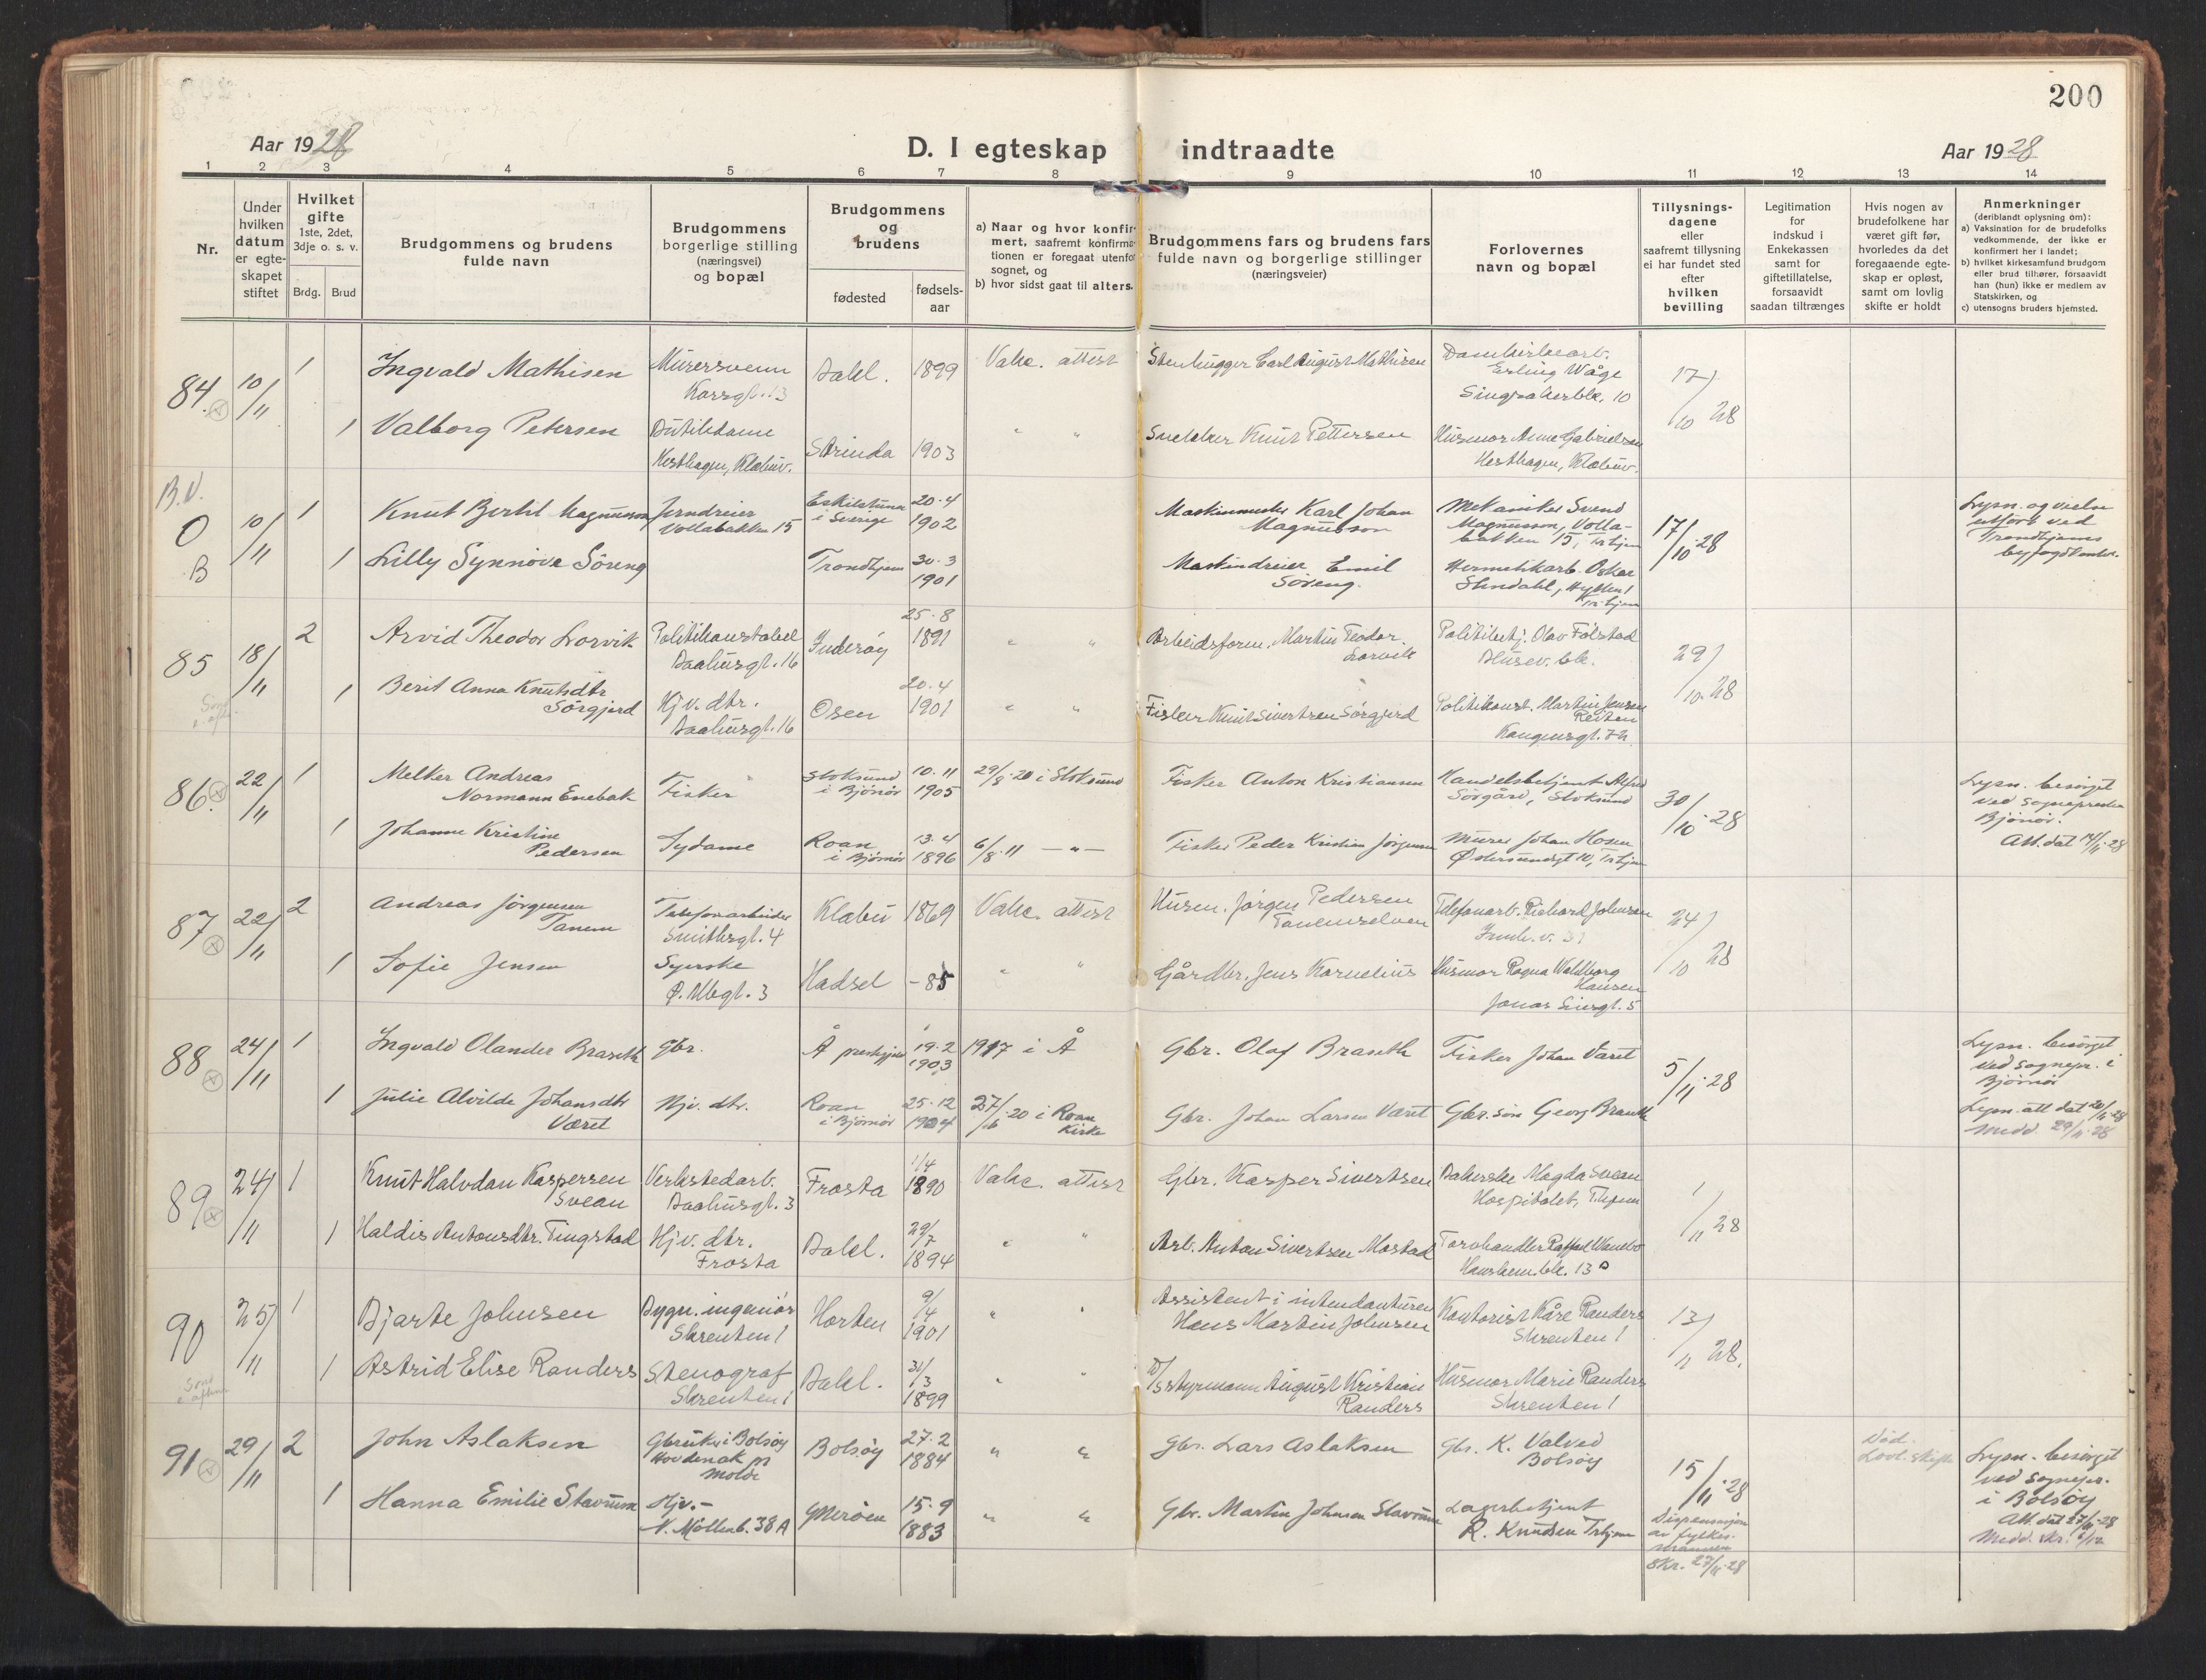 200
Aar 1928
D. I egteskap indtraadte
Aar 1928
1 2 3 4 5 6 7 8 9 10 11 12 13 14
Nr.
Under hvilken datum er egteskapet stiftet
Hvilket gifte 1ste, 2det, 3dje o. s. v.
Brdg. Brud
Brudgommens og brudens fulde navn
Brudgommens borgerlige stilling (næringsvei) og bopæl
Brudgommens og brudens
fødested
fødselsaar
a) Naar og hvor konfirmert, saafremt konfirmationen er foregaat utenfor sognet, og
b) hvor sidst gaat til alters.
Brudgommens fars og brudens fars fulde navn og borgerlige stillinger (næringsveier)
Forlovernes navn og bopæl
Tillysningsdagene eller saafremt tillysning ei har fundet sted efter hvilken bevilling
Legitimation for indskud i Enkekassen samt for giftetillatelse, forsaavidt saadan tiltrænges
Hvis nogen av brudefolkene har været gift før, hvorledes da det foregaaende egteskap er opløst, samt om lovlig skifte er holdt
Anmerkninger (deriblandt oplysning om):
a) Vaksination for de brudefolks vedkommende, der ikke er konfirmert her i landet;
b) hvilket kirkesamfund brudgom eller brud tilhører, forsaavidt han (hun) ikke er medlem av Statskirken, og
c) utensogns bruders hjemsted.
84. 10/11 1 Ingvald Mathisen Murersvenn Bakl. 1899 Vakc. attest Stenhugger Carl August Mathisen Erling Wåge 10 17/10 28
1 Valborg Petersen Strinda 1903 " " Snekker Knut Pettersen Husmor Anne Gabrielsen
B.V. 0 B 10/11 1 Knut Bertil Magnusson Jerndreier Vollabakken 15 Eskilstuna i Sverige 20-4 1902 Maskinmester Karl Johan Magnusson Mekaniker Svend Magnusson, Vollabakken 15, Trhjem 17/10-28 Lysn. og vielse utført ved Trondhjems byfogdembe.
1 Lilly Synnöve Söreng Trondhjem 30-3 1901 Maskindreier Emil Söreng. Hermetikarb. Oskar Stendahl, Trhjem
85 18/11 2 Arvid Theodor Lorvik Politikonstabel 16 Inderøy 25-8 1891 " " Arbeidsform. Martin Teodor Lorvik Politibetj. Olav Følstad 29/10-28
1 Berit Anna Knutsdtr Sörgjerd Hjv. dtr. 16 Osen 20-4 1901 " " Fisker Knut Sivertsen Sörgjerd Politikonst. Martin Jensen
86. 22/11 1 Melker Andreas Normann Enebak Fisker Stoksund i Bjönör 10-11 1905 29/8-20 i Stoksund Fisker Anton Kristiansen Handelsbetjent Alfred Sörgård, Stoksund 30/10-28 Lysn. besörget ved sognepresten Bjönör. Att. dat 14/11-28
1 Johanne Kristine Pedersen Sydame Roan i Bjørnör 13-4 1896 6/8-11 —"— Fisker Peder Kristian Jörgensen Murer Johan Hosen Østersundsgt 10, Trhjem
87 22/11 2 Andreas Jörgensen Tanem Telefonarbeider Smithsgt. 4 Klæbu 1869 Vakc. attest Husm. Jørgen Pedersen Tanemselven Telefonarb. Richard Johnsen 24/10 28
1 Sofie Jensen Syerske 3 Hadsel -85 " " Gårdbr. Jens Kornelius Husmor Ragna Waldborg Hansen 5
88 24/11 1 Ingvald Olander Braseth Gbr. Å prestgjeld 19-2 1903 1917 i Å Gbr. Olaf Braseth Fisker Johan Været 5/11-28 Lysn. besörget ved Sognepr. i Bjönör
1 Julie Alvilde Johansdtr Været Hjv. dtr. Roan i Bjönör 25-12 1904 27/6-20 i Roan Kirke Gbr. Johan Larsen Været Gbr. sön Georg Braseth Lysn. att dat 20/11-28 Medd. 29/11-28
89 24/11 1 Knut Halvdan Kaspersen Svean Verkstedarb. 3 Frosta 1/4 1890 Vakc. attest Gbr. Kasper Sivertsen Magda Svean Hospitalet, 1/11 28
1 Haldis Antonsdtr. Tingstad Hjv. dtr. Frosta Bakl. 29/7 1894 " " Arb. Anton Sivertsen Mostad Torvhandler 13
90 25/11 1 Bjarte Johnsen Bygn. ingeniör Skrenten 1 Horten 9/4 1901 " " Assistent i intendanturen Hans Martin Johnsen Kontorist Kåre Randers Skrenten 1 13/11 28.
1 Astrid Elise Randers Stenograf Skrenten 1 Bakl. 31/3 1899 " " styrmann August Kristian Randers Husmor Marie Randers Skrenten 1
91 29/11 2 John Aslaksen Gbruker i Bolsöy Molde Bolsöy 27-2 1884 " " Gbr. Lars Aslaksen Gbr. K. Valved Bolsöy 15/11-28 Lysn. besörget ved Sognepr. i Bolsöy
1 Hanna Emilie Stavrum Hjv.- N. Möllenb. 38A 15-9 1883 " " Gbr. Martin Johnsen Stavrum Lagerbetjent R. Knudsen Trhjem Dispensasjon av fylkesmannen Skr. 27/11-28 Att. dat 27/11-28 Medd. skr. 6/12